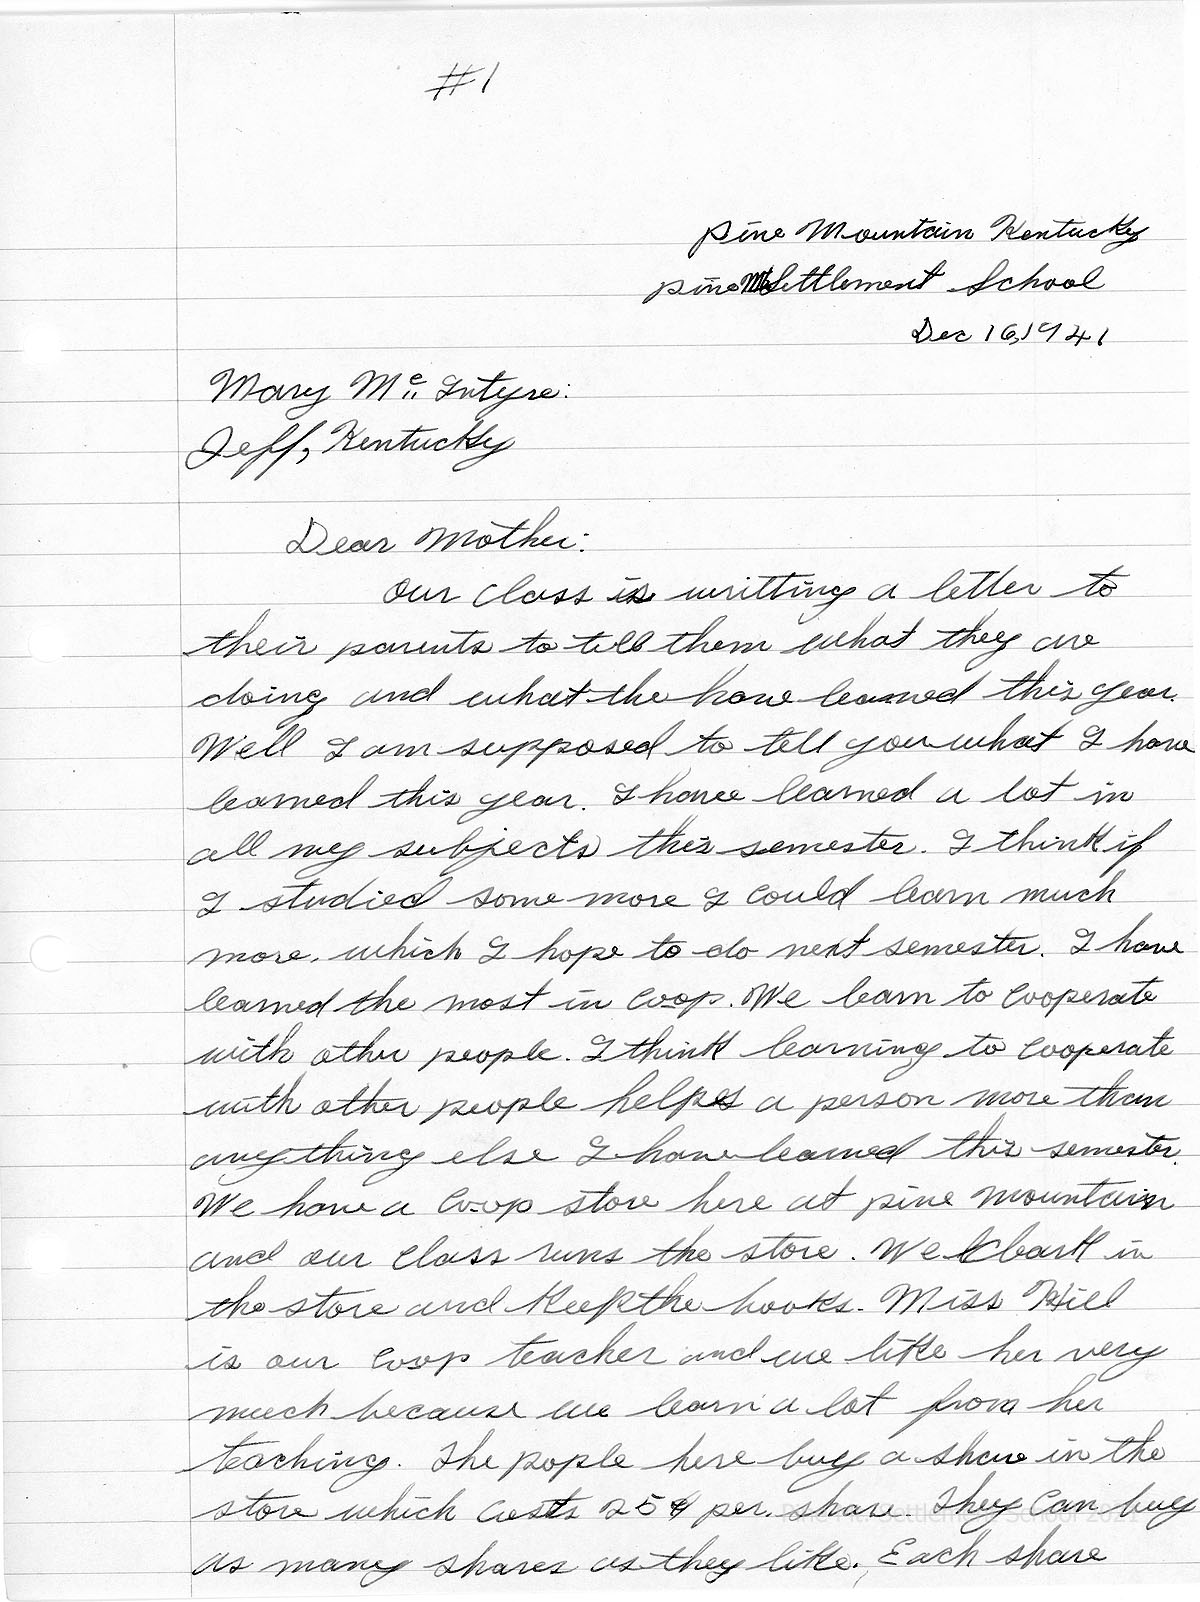 #1
Pine Mountain Kentucky
Pine Mt Settlement School
Dec 16, 1941
Mary Mc Intyre:
Jeff, Kentucky
Dear Mother:
Our class is writting a letter to
their parents to tell them what they are
doing and what the have learned this year.
Well I am supposed to tell you what I have
learned this year. I have learned a lot in
all my subjects this semester. I think if
I studied some more I could learn much
more. which I hope to do next semester. I have
learned the most in Co-op. We learn to Cooperate
with other people. I think learning to Cooperate
with other people helps a person more than
anything else I have learned this semester.
We have a Co-op store here at pine Mountain
and our class runs the store. We Clark in
the store and keep the books. Miss Hill
is our Coop teacher and we like her very
much because we learn a lot from her
teaching. The pople here buy a share in the
store which costs 25¢ per. share. They Can buy
as many shares as they like. Each share